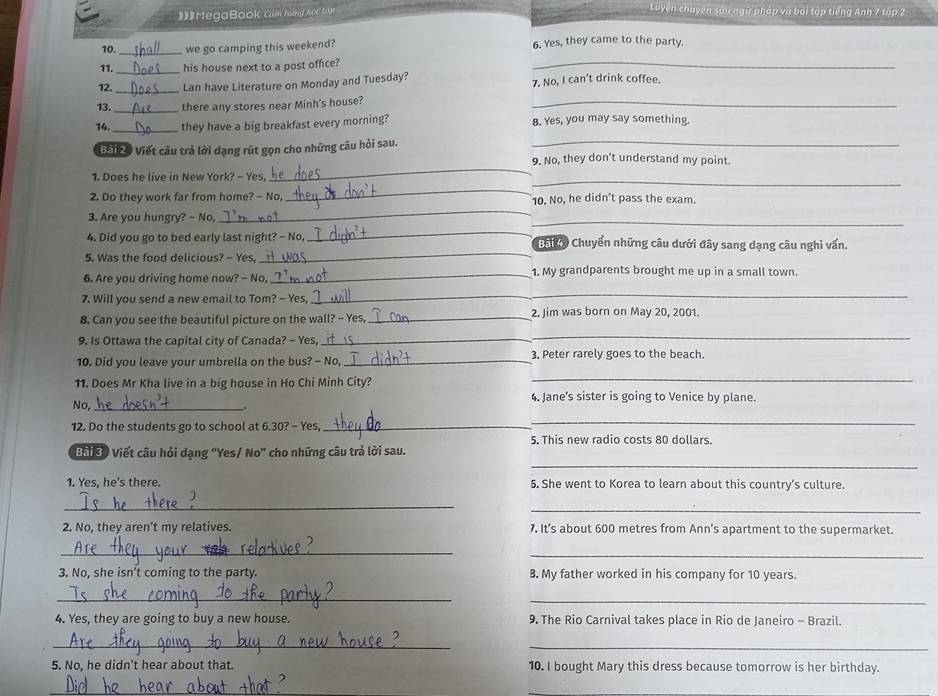 MegaBook Cảm hứng học tập
Luyện chuyên sâu ngữ pháp và bài tập tiếng Anh 7 tập 2
10. Shall we go camping this weekend?
11. Does his house next to a post office?
12. Does Lan have Literature on Monday and Tuesday?
13. Are there any stores near Minh's house?
14. Do they have a big breakfast every morning?
Bài 2 Viết câu trả lời dạng rút gọn cho những câu hỏi sau.
1. Does he live in New York? – Yes, he does
2. Do they work far from home? – No, they don't
3. Are you hungry? – No, I'm not
4. Did you go to bed early last night? – No, I didn't
5. Was the food delicious? – Yes, it was
6. Are you driving home now? – No, I'm not
7. Will you send a new email to Tom? – Yes, I will
8. Can you see the beautiful picture on the wall? – Yes, I can
9. Is Ottawa the capital city of Canada? – Yes, it is
10. Did you leave your umbrella on the bus? – No, I didn't
11. Does Mr Kha live in a big house in Ho Chi Minh City?
No, he doesn't.
12. Do the students go to school at 6.30? – Yes, they do
Bài 3 Viết câu hỏi dạng "Yes/ No" cho những câu trả lời sau.
1. Yes, he's there.
Is he there?
2. No, they aren't my relatives.
Are they your relatives?
3. No, she isn't coming to the party.
Is she coming to the party?
4. Yes, they are going to buy a new house.
Are they going to buy a new house?
5. No, he didn't hear about that.
Did he hear about that?
6. Yes, they came to the party.
7. No, I can't drink coffee.
8. Yes, you may say something.
9. No, they don't understand my point.
10. No, he didn't pass the exam.
Bài 4 Chuyển những câu dưới đây sang dạng câu nghi vấn.
1. My grandparents brought me up in a small town.
2. Jim was born on May 20, 2001.
3. Peter rarely goes to the beach.
4. Jane's sister is going to Venice by plane.
5. This new radio costs 80 dollars.
6. She went to Korea to learn about this country's culture.
7. It's about 600 metres from Ann's apartment to the supermarket.
8. My father worked in his company for 10 years.
9. The Rio Carnival takes place in Rio de Janeiro – Brazil.
10. I bought Mary this dress because tomorrow is her birthday.